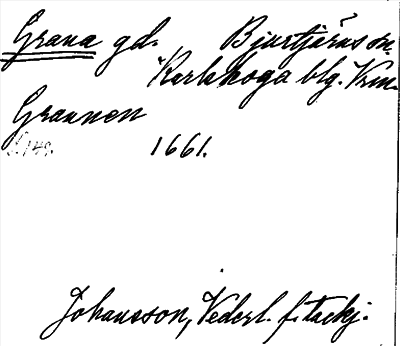 Grana gd. Bjurtjärns sn.
Karlskoga blg. Vrm.
Grannen
S. 149. 1661.
Johansson, Vederl. f. tackj.